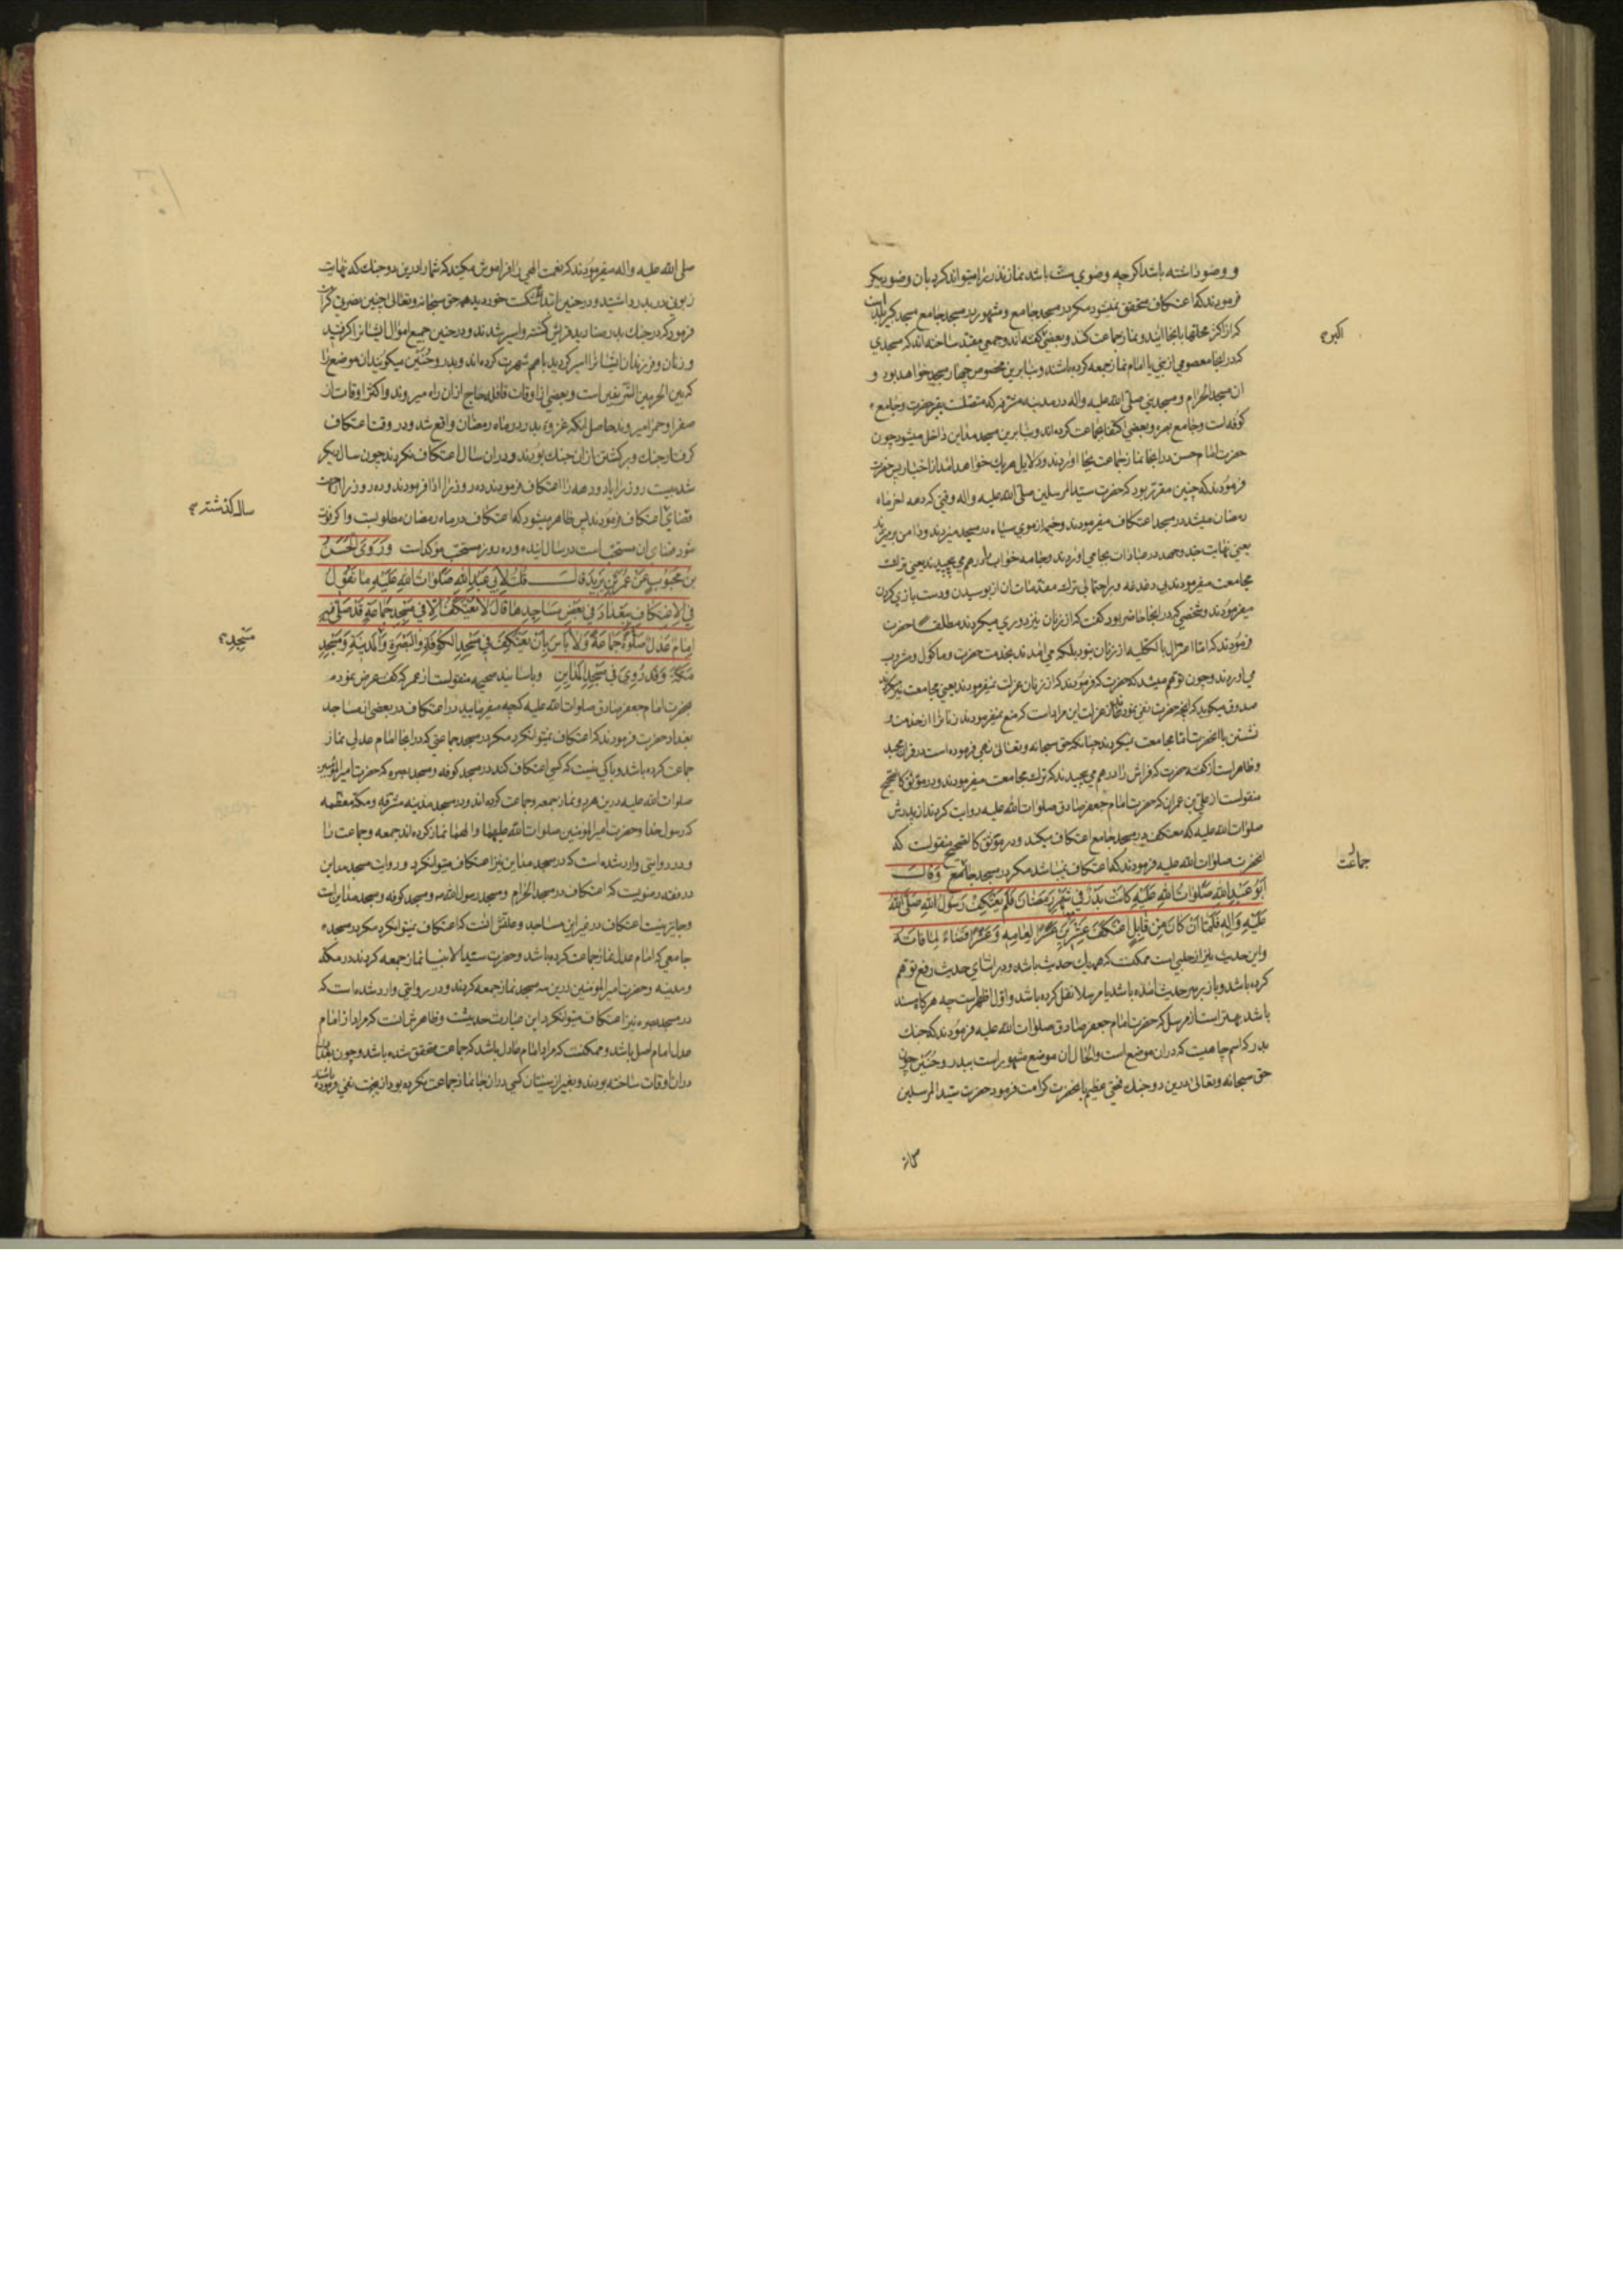 و وضو داشته باشد اگرچه وضوی سنت باشد نماز نذر را میتواند کرد بان وضو دیکر
فرمودند که اعتکاف متحقق نمیشود مکر در مسجد جامع و مشهور در مسجد جامع مسجد کبیر بلد است
که از اکثر محلتها بانجا ایند و نماز جماعت کنند و بعضی کفته اند و جمعی مقید ساخته اند که مسجدی
اکبر
که در انجا معصومی از نبی یا امام نماز جمعه کرده باشند و بنا برین مخصوص چهار مسجد خواهد بود و
ان مسجد الحرام و مسجد نبی صلی الله علیه واله در مدینه مشرفه که متصلست بقبر حضرت و جامع
کوفه است و جامع بصره و بعضی اکتفا بجماعت کرده اند و بنا برین مسجد مداین داخل میشود چون
حضرت امام حسن در انجا نماز جماعت بجا اوردند و دلایل هر یک خواهد امد از اخبار پس حضرت
فرمودند که چنین مقرر بود که حضرت سید المرسلین صلی الله علیه واله وقتی که دهه اخر ماه
رمضان میشد در مسجد اعتکاف میفرمودند و خیمه از موی سیاه در مسجد میزدند و دامن بر میزدند
یعنی نهایت جد و جهد در عبادات بجا می اوردند و جامه خواب را درهم می پیچیدند یعنی ترک
مجامعت میفرمودند بی دغدغه و بر احتمالی ترک مقدمات ان از بوسیدن و دست بازی کردن
میفرمودند و شخصی که در انجا حاضر بود کفت که از زنان نیز دوری میکردند مطلقا حضرت
فرمودند که اما اعتزال بالکلیه از زنان نبود بلکه می امدند بخدمت حضرت و ماکول و مشروب
می اوردند و چون توهم میشد که حضرت که فرمودند که از زنان عزلت نمیفرمودند یعنی مجامعت نیز میکردند
صدوق میکوید که انچه حضرت نفی نمود از عزلت این مراد است که منع نمیفرمودند زنانرا از خدمت و
نشستن با انحضرت اما مجامعت نمیکردند چنانکه حق سبحانه و تعالی نهی فرموده است در قران مجید
و ظاهر است از کفته حضرت که فراش را درهم می پیچیدند که ترک مجامعت میفرمودند و در موثق کالصحیح
منقولست از علی بن عمران که حضرت امام جعفر صادق صلوات الله علیه روایت کردند از پدرش
صلوات الله علیه که معتکف در مسجد جامع اعتکاف میکند و در موثق کالصحیح منقولست که
انحضرت صلوات الله علیه فرمودند که اعتکاف نمیباشد مکر در مسجد جامع وَقَالَ
جماعت
اَبُو عَبْدِ اللهِ صَلَوَاتُ اللهِ عَلَیْهِ کَانَتْ بَدْرٌ فِی شَهْرِ رَمَضَانَ فَلَمْ یَعْتَکِفْ رَسُولُ اللهِ صَلَّی اللهُ
عَلَیْهِ وَاٰلِهِ فَلَمَّا اَنْ کَانَ مِنْ قَابِلٍ اعْتَکَفَ عِشْرِینَ عَشْرًا لِعَامِهِ وَعَشْرًا قَضَاءً لِمَا فَاتَهُ
و این حدیث نیز از حلبی است ممکنست که همه یک حدیث باشد و در اثنای حدیث رفع توهم
کرده باشد و باز بر سر حدیث امده باشد یا مرسلا نقل کرده باشد و اول اظهر است چه هر کاه مسند
باشد بهتر است از مرسل که حضرت امام جعفر صادق صلوات الله علیه فرمودند که جنک
بدر که اسم چاهیست که در ان موضع است و الحال ان موضع مشهور است ببدر و حُنَیْن چون
حق سبحانه و تعالی درین دو جنک فتحی عظیم بانحضرت کرامت فرمود حضرت سید المرسلین
صلی الله علیه واله میفرمودند که نعمت الهی را فراموش مکنید که شما را درین دو جنک که نهایت
زبونی در بدر داشتید و در حنین ابتدا شکست خوردید همه حق سبحانه و تعالی چنین نصرتی کرامت
فرمود که در جنک بدر صنادید قریش کشته و اسیر شدند و در حنین جمیع اموال ایشانرا کرفتید
و زنان و فرزندان ایشانرا اسیر کردید باهم شهرت کرده اند و بدر و حُنَیْن میکویند ان موضع را
که بین الحرمین الشریفین است و بعضی از اوقات قافله حاج از ان راه میروند و اکثر اوقات از
صفرا و حمرا میروند حاصل انکه غزوه بدر در ماه رمضان واقع شد و در وقت اعتکاف
کرفتار جنک و برکشتن از ان جنک بودند و در ان سال اعتکاف نکردند چون سال دیکر
شد بیست روز را یا دو دهه را اعتکاف فرمودند ده روز را ادا فرمودند و ده روز را از جهت
قضای اعتکاف فرمودند پس ظاهر میشود که اعتکاف در ماه رمضان مطلوبست و اکر فوت
سال کذشته
شود قضای ان مستحب است در سال اینده و ده روز مستحب موکد است وَرَوَی الْحَسَنُ
بْنُ مَحْبُوبٍ عَنْ عُمَرَ بْنِ یَزِیدَ قَالَ قُلْتُ لِاَبِی عَبْدِ اللهِ صَلَوَاتُ اللهِ عَلَیْهِ مَا تَقُولُ
فِی الْاِعْتِکَافِ بِبَغْدَادَ فِی بَعْضِ مَسَاجِدِهَا قَالَ لَا تَعْتَکِفْ اِلَّا فِی مَسْجِدِ جَمَاعَةٍ قَدْ صَلَّی فِیهِ
اِمَامٌ عَدْلٌ صَلٰوةَ جَمَاعَةٍ وَلَا بَاْسَ بِاَنْ یُعْتَکَفَ فِی مَسْجِدِ الْکُوفَةِ وَالْبَصْرَةِ وَالْمَدِینَةِ وَمَسْجِدِ
مَسْجِدِ
مَکَّةَ وَقَدْ رُوِیَ فِی مَسْجِدِ الْمَدَاینِ و باسانید صحیحه منقولست از عمر که کفت عرض نمودم
بحضرت امام جعفر صادق صلوات الله علیه که چه میفرمایید در اعتکاف در بعضی از مساجد
بغداد حضرت فرمودند که اعتکاف نمیتوان کرد مکر در مسجد جماعتی که در انجا امام عدلی نماز
جماعت کرده باشد و باکی نیست که کسی اعتکاف کند در مسجد کوفه و مسجد بصره که حضرت امیر المؤمنین
صلوات الله علیه درین هر دو نماز جمعه و جماعت کرده اند و در مسجد مدینه مشرفه و مکه معظمه
که رسول خدا و حضرت امیر المؤمنین صلوات الله علیهما والهما نماز کرده اند جمعه و جماعت را
و در روایتی وارد شده است که در مسجد مداین نیز اعتکاف میتوان کرد و روایت مسجد مداین
در مقنعه مرویست که اعتکاف در مسجد الحرام و مسجد رسول الله و مسجد کوفه و مسجد مداین است
و جایز نیست اعتکاف در غیر این مساجد و علتش انست که اعتکاف نمیتوان کرد مکر در مسجد
جامعی که امام عدل نماز جماعت کرده باشد و حضرت سید الانبیا نماز جمعه کردند در مکه
و مدینه و حضرت امیر المؤمنین درین سه مسجد نماز جمعه کردند و در روایتی وارد شده است که
در مسجد بصره نیز اعتکاف میتوان کرد این عبارت حدیثست و ظاهرش انست که مراد از امام
عدل امام اصل باشد و ممکنست که مراد امام عادل باشد که جماعت متحقق شده باشد و چون بغداد را
در ان اوقات ساخته بودند و بغیر از سنیان کسی در ان جا نماز جماعت نکرده بود از انجهت نفی فرموده باشند